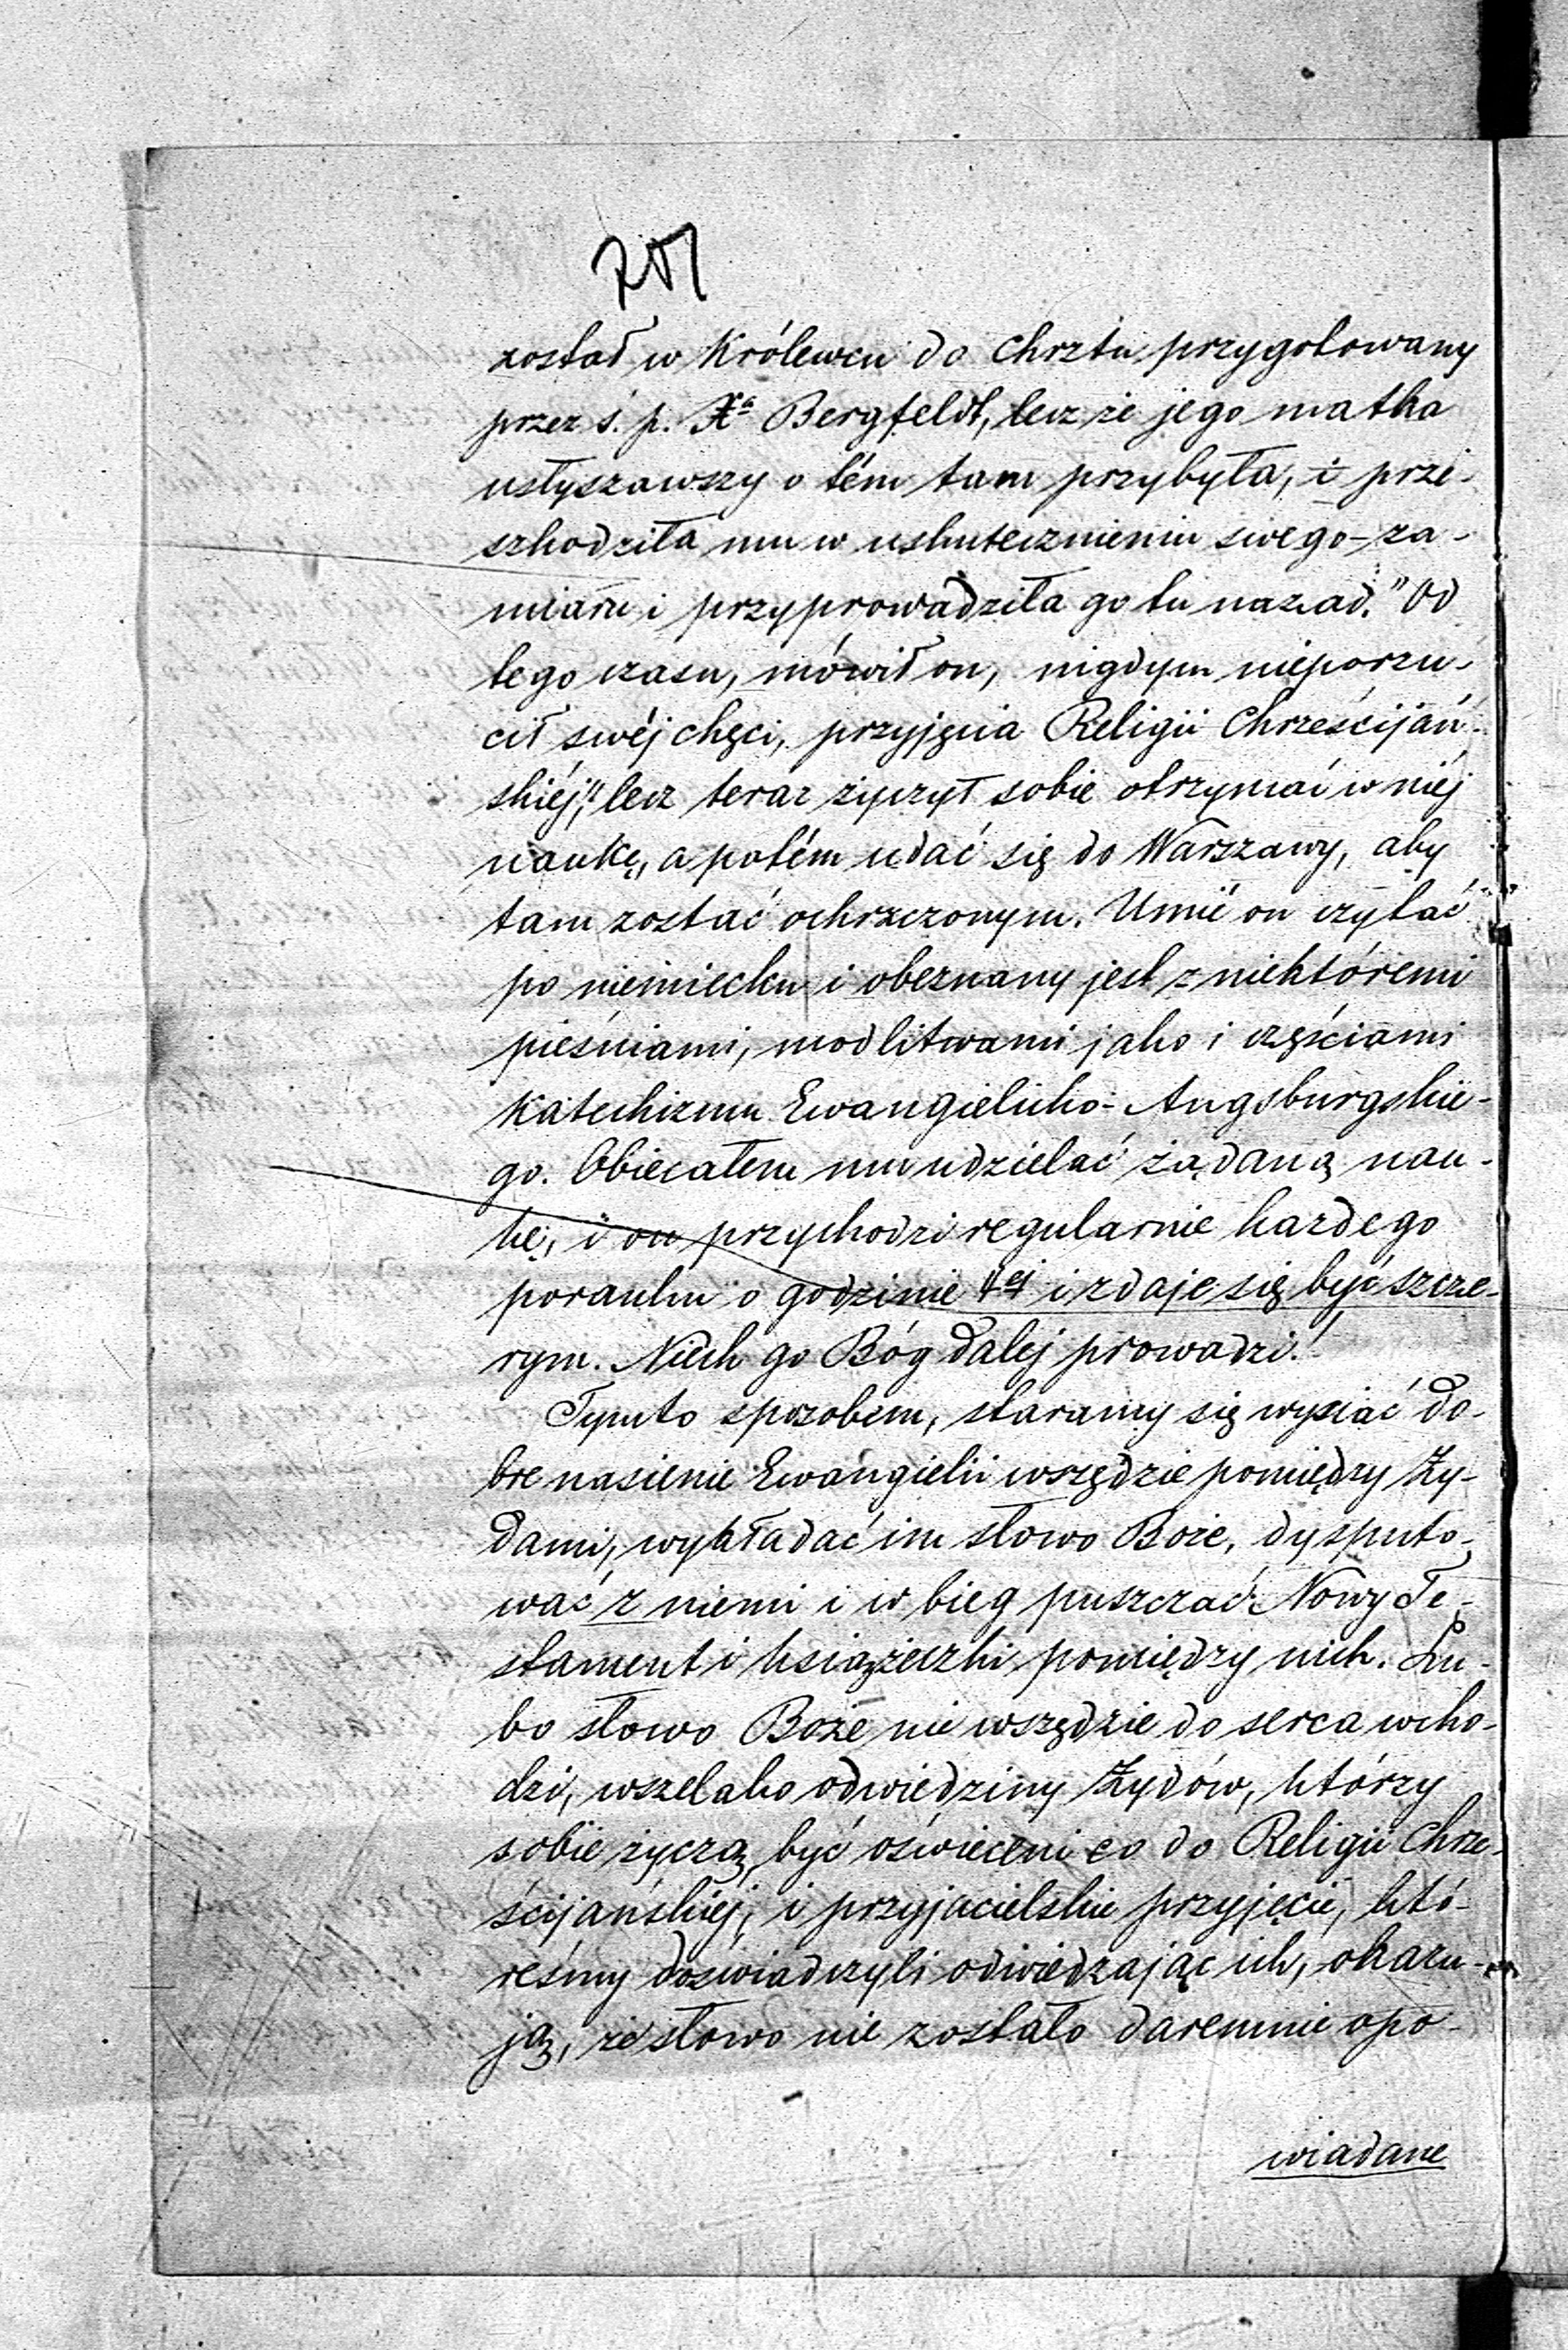 został w Królewcu do chrztu przygotowany
przez ś. p. Xa Bergfeldt, lecz że jego matka
usłyszawszy o tém tam przybyła, i prze-
szkodziła mu w uskutecznieniu swego za-
miaru i przyprowadziła go tu nazad." Od
tego czasu, mówił on, nigdym nieporzu-
cił swéj chęci, przyjęcia Religii Chrześcijań-
skiéj," lecz teraz życzył sobie otrzymać w niéj
naukę, a potém udać się do Warszawy, aby
tam zostać ochrzczonym. Umié on czytać
po niemiecku i obeznany jest z niektóremi
pieśniami, modlitwami jako i częściami
Katechizmu Ewangielicko-Augsburgskie-
go. Obiecałem mu udzielać żądaną nau-
kę, i on przychodzi regularnie każdego
poranku o godzinie 4ej i zdaje się być szcze-
rym. Niech go Bóg dalej prowadzi!
Tymto sposobem, staramy się wysiać do-
bre nasienie Ewangielii wszędzie pomiędzy Ży-
dami, wykładać im słowo Boże, dysputo-
wać z niemi i w bieg puszczać Nowy Te-
stament i książeczki pomiędzy nich. Lu-
bo słowo Boże nie wszędzie do serca wcho-
dzi, wszelako odwiedziny Żydów, którzy
sobie życzą być oświeceni co do Religii Chrze-
ścijańskiej, i przyjacielskie przyjęcie, któ-
reśmy doświadczyli odwiedzając ich, okazu-
ją, że słowo nie zostało daremnie opo-
wiadane